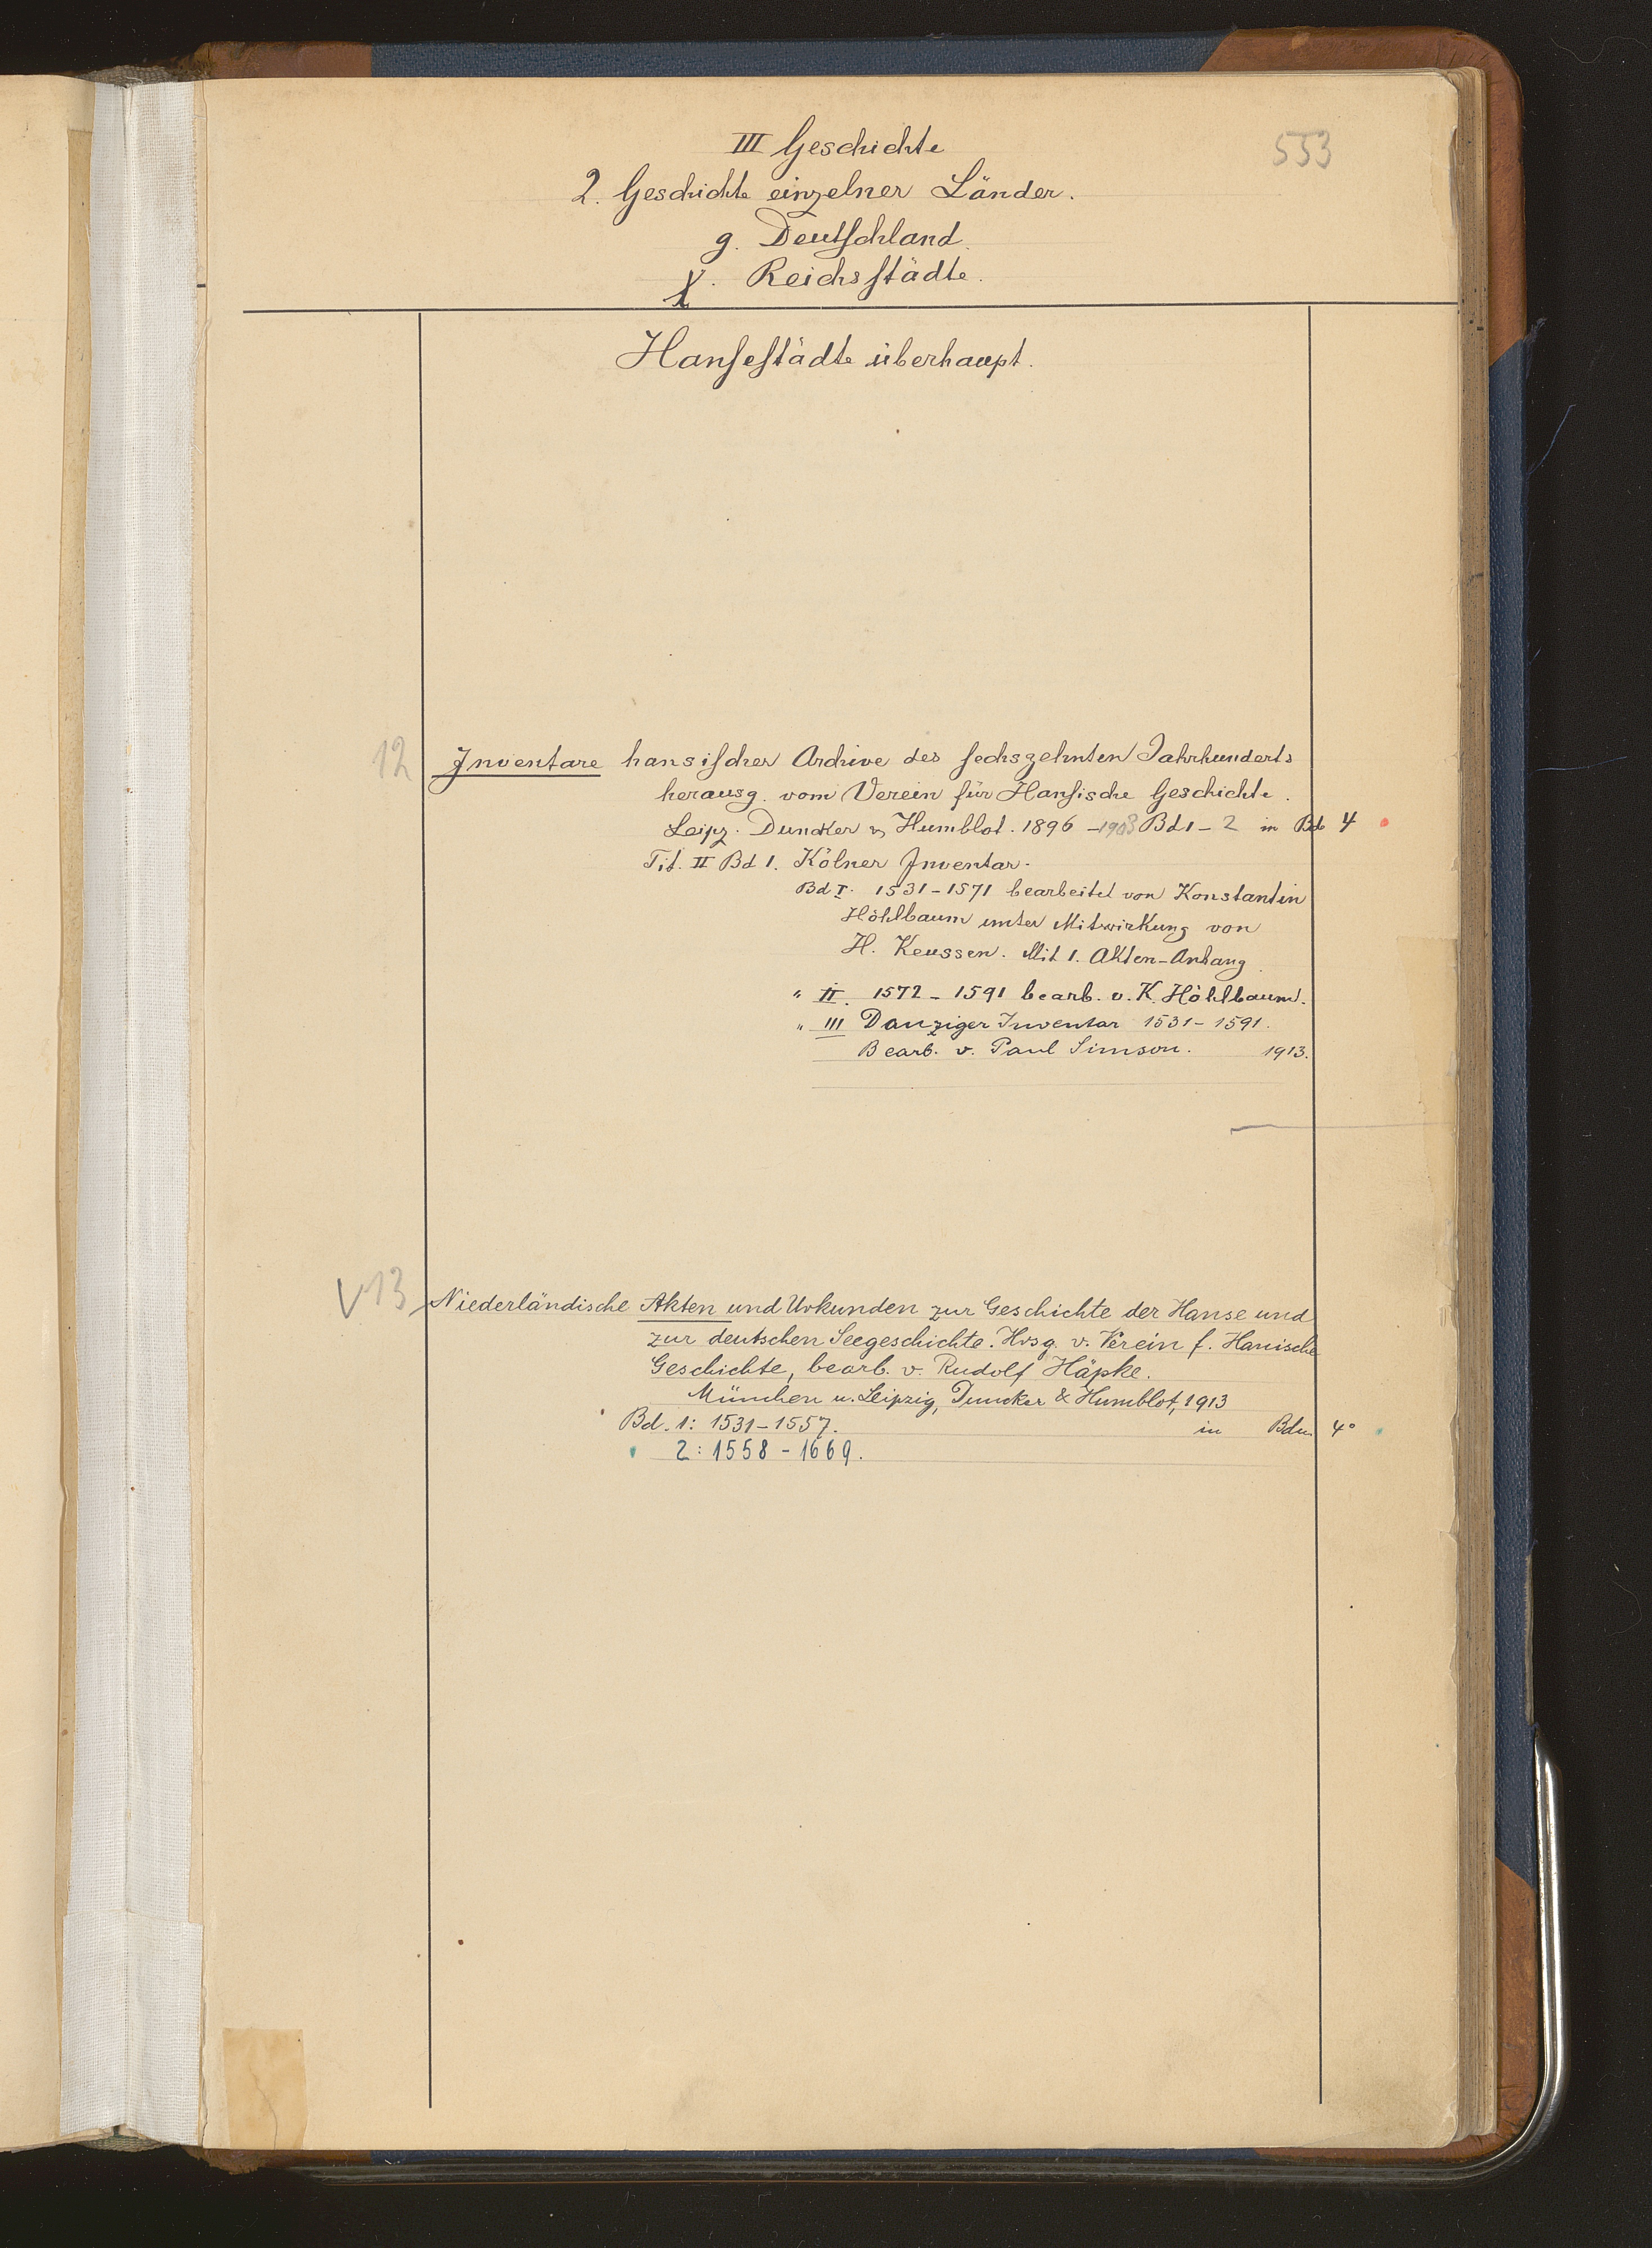 553
III Geschichte
2. Geschichte einzelner Länder.
g. Deutschland.
χ. Reichsstädte.
Hansestädte überhaupt.
12 Inventare hansischer Archive des sechszehnten Jahrhunderts
herausg. vom Verein für Hansische Geschichte.
Leipz. Duncker & Humblot. 1896 - 1903 Bd 1 - 2 in Bd 4
Tit. II Bd 1. Kölner Inventar.
Bd I. 1531-1571 bearbeitet von Konstantin
Höhlbaum unter Mitwirkung von
H. Keussen. Mit 1. Akten-Anhang.
" II. 1572 - 1591 bearb. v. K. Höhlbaum.
" III Danziger Inventar 1531 - 1591.
Bearb. v. Paul Simson. 1913.
V 13 Niederländische Akten und Urkunden zur Geschichte der Hanse und
zur deutschen Seegeschichte. Hrsg. v. Verein f. Hanische
Geschichte, bearb. v. Rudolf Häpke.
München u. Leipzig, Duncker & Humblot, 1913
Bd. 1: 1531-1557. in Bdn. 4°
2: 1558 - 1669.